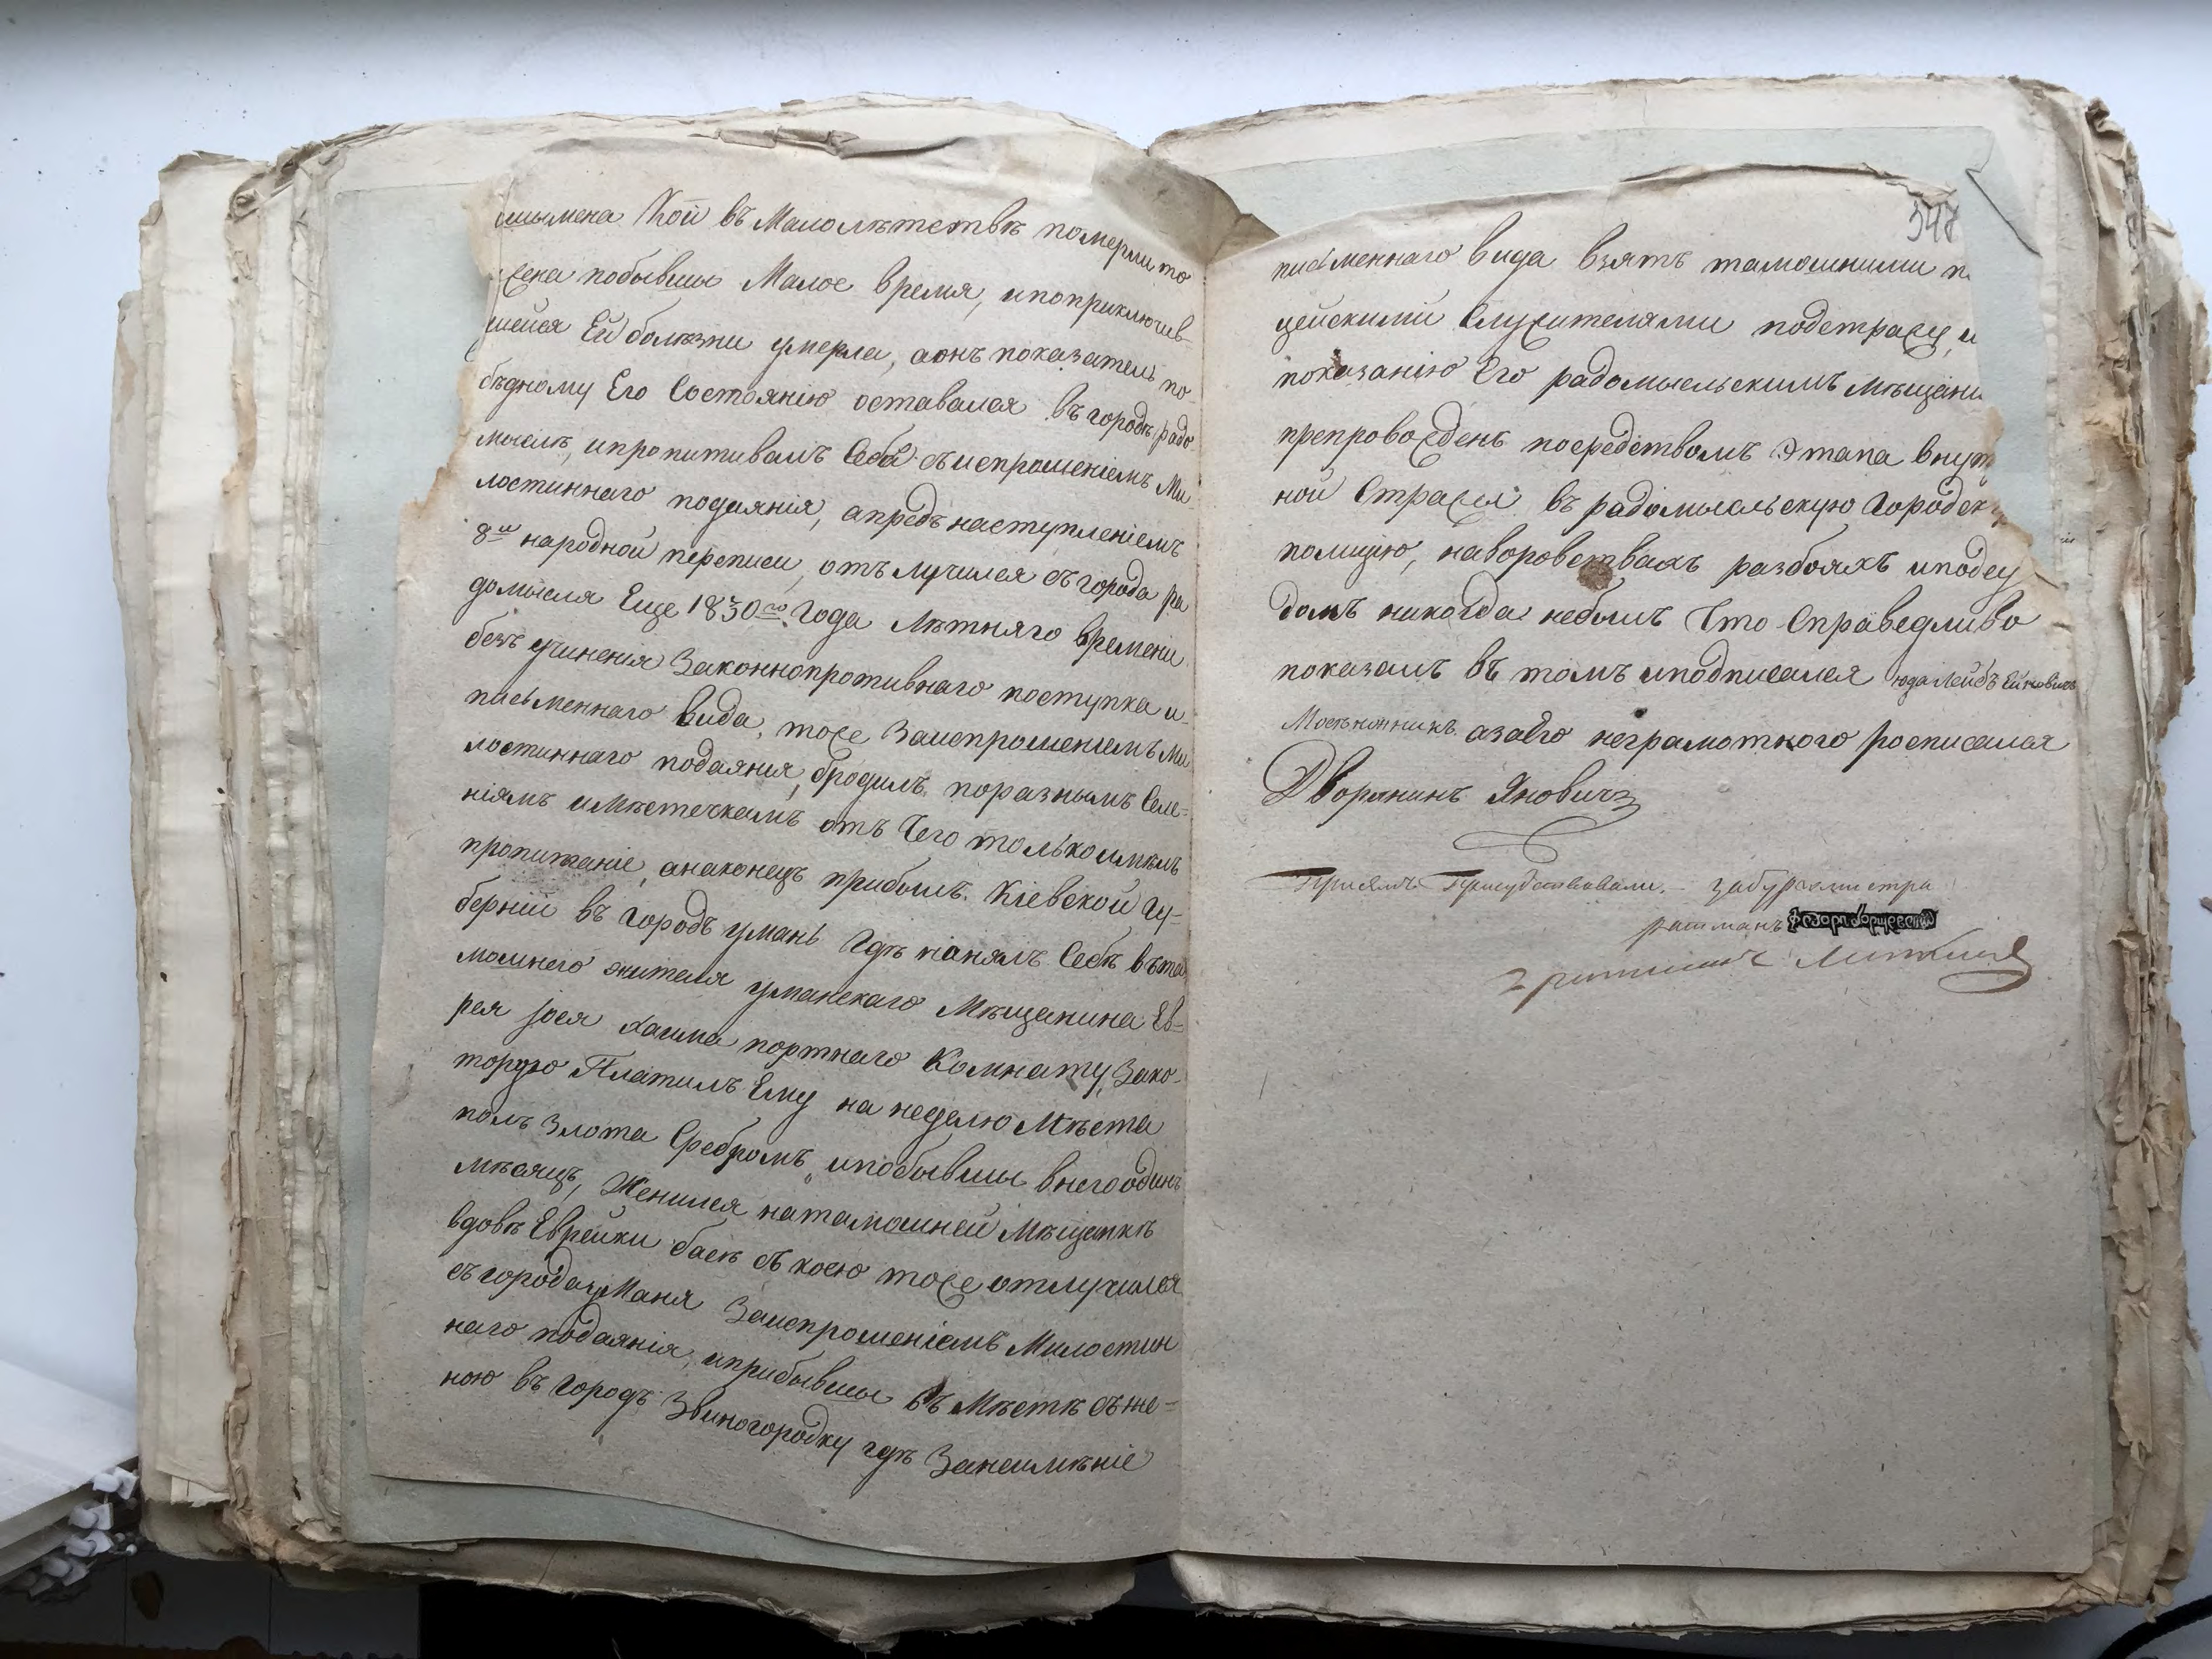 шымена Кои въ Малолѣтствѣ померли то
жена побывши Малое время, ипоприключив-
шейся Ей болѣзни умерла, аонъ показатель по-
бѣдному Его Состоянію оставался въ городѣ радо-
мыслѣ, ипропитивалъ Себѣ съиспрошеніемъ Ми-
лостиннаго подаянія, апредъ наступленіемъ
8й народной переписи, отълучился съ города ра
домысля Еще 1830го Года лѣтняго времени
безъ учиненія Законнопротивнаго поступка и
письменнаго вида, тоже Заиспрошеніемъ Ми
лостиннаго подаянія, бродилъ поразнымъ Селе-
ніямъ иМѣстечкамъ отъ Чего только имѣлъ
пропитаніе, анаконецъ прибылъ Кіевской Гу-
берніи въ Городъ умань Гдѣ нанялъ Себѣ вта
мошнего жителя уманскаго Мѣщанина Ев-
рея Іося хаима портнаго Комнату, Зако-
торую Платилъ Ему на неделю Мѣста
полъ Злота Сребромъ, ипобывши внего одинъ
мѣсяцъ, Женился натамошней Мѣщанкѣ
вдовѣ Еврейки басѣ съ коею тоже отлучился
съгорода уМаня Заиспрошеніемъ Милостин
наго подаянія, иприбывши въ Мѣстѣ съже-
ною въ Городъ Звиногородку гдѣ Занеимѣніе
347
письменнаго вида взятъ тамошними п
цейскими Служителями подстражу, и
показанію Его радомысльскимъ мѣщани
препровожденъ посредствомъ Этапа внут
ной Стражи въ радомысльскую Городск
полицію, наворовствахъ разбояхъ иподсу
домъ никогда небылъ Что Справедливо
показалъ въ томъ иподписался юда Лейбъ
азаего неграмотного росписался
Дворянинъ Яновичъ
Присемъ Присудствовали. забургомистра
ратманъ